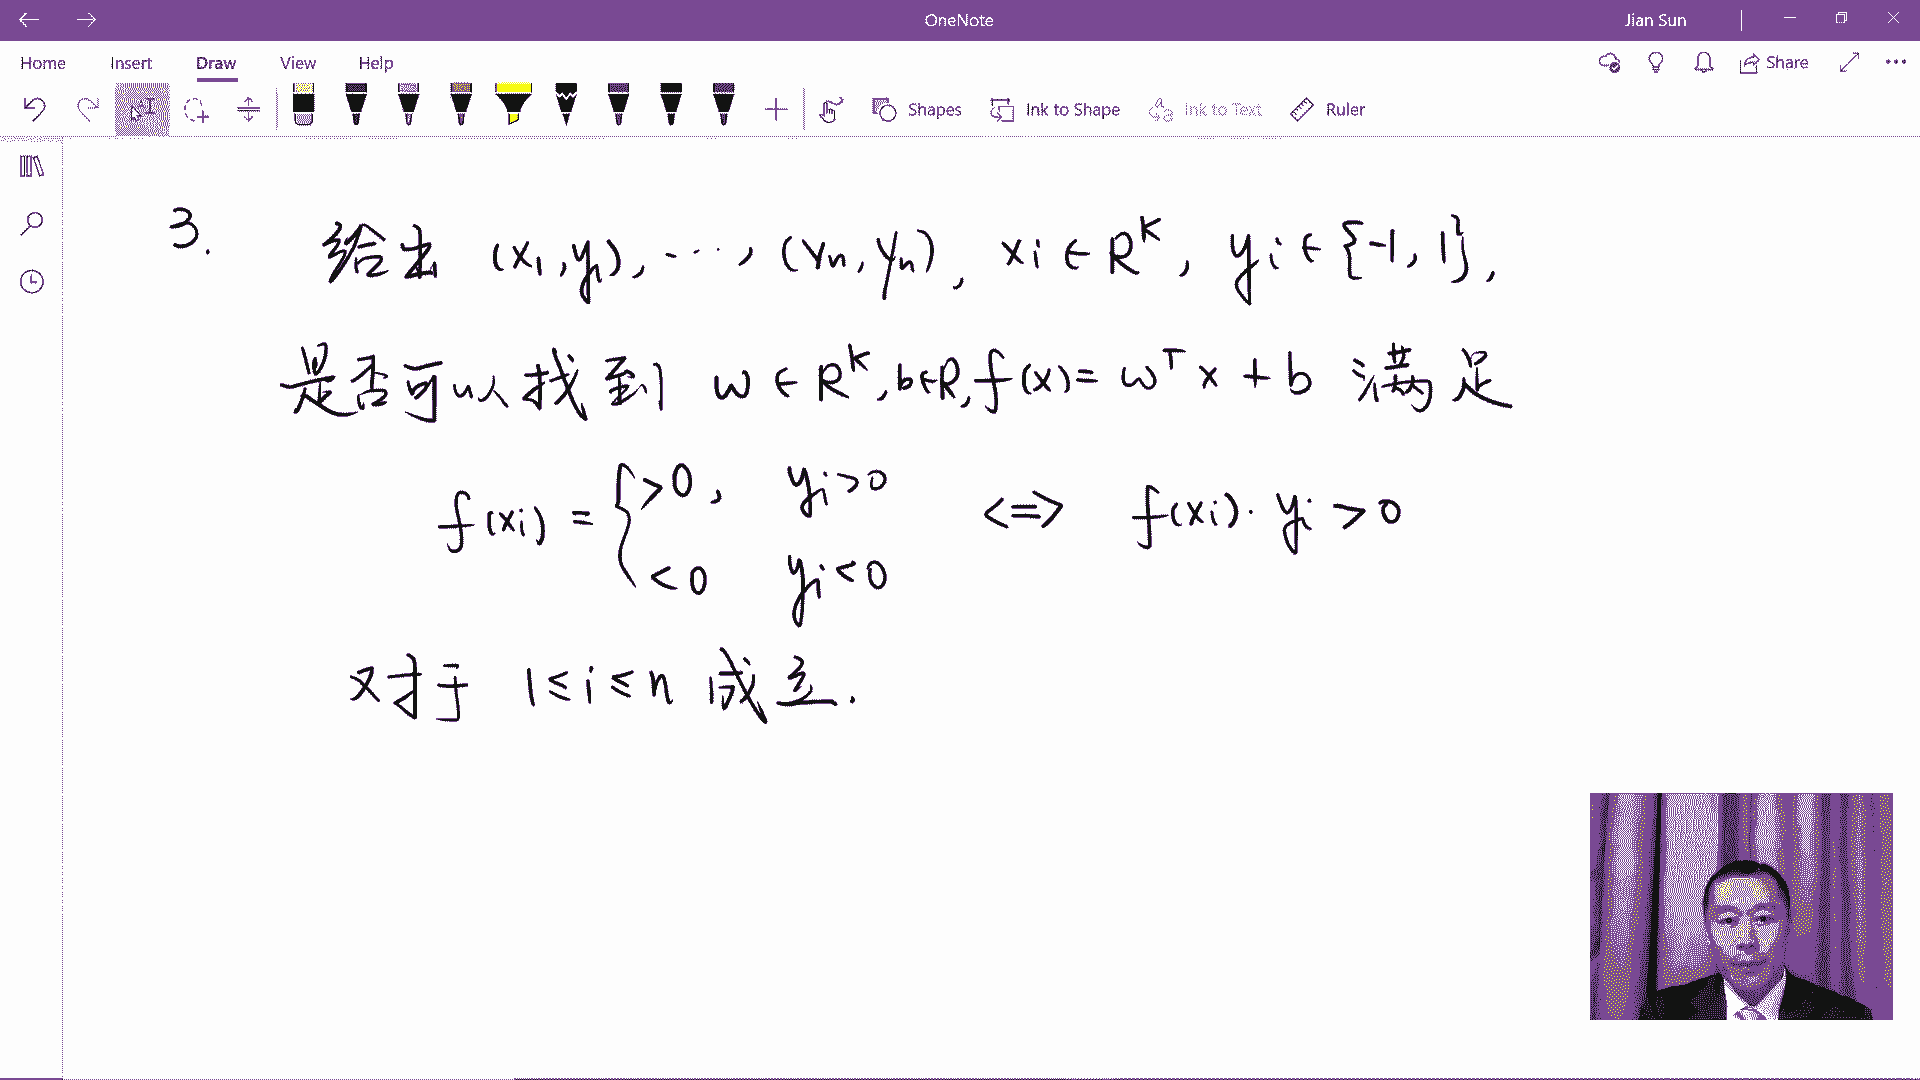 OneNote
Jian Sun
Home Insert Draw View Help
Share
Shapes Ink to Shape Ink to Text Ruler
3. 给出 (x₁,y₁), ⋯, (xₙ,yₙ), xi ∈ R^K, yi ∈ {-1, 1},
是否可以找到 w ∈ R^K, b∈R, f(x)= w^T x + b 满足
f(xi) = { >0, yi>0
<0 yi<0
<=> f(xi)·yi > 0
对于 1≤i≤n 成立.